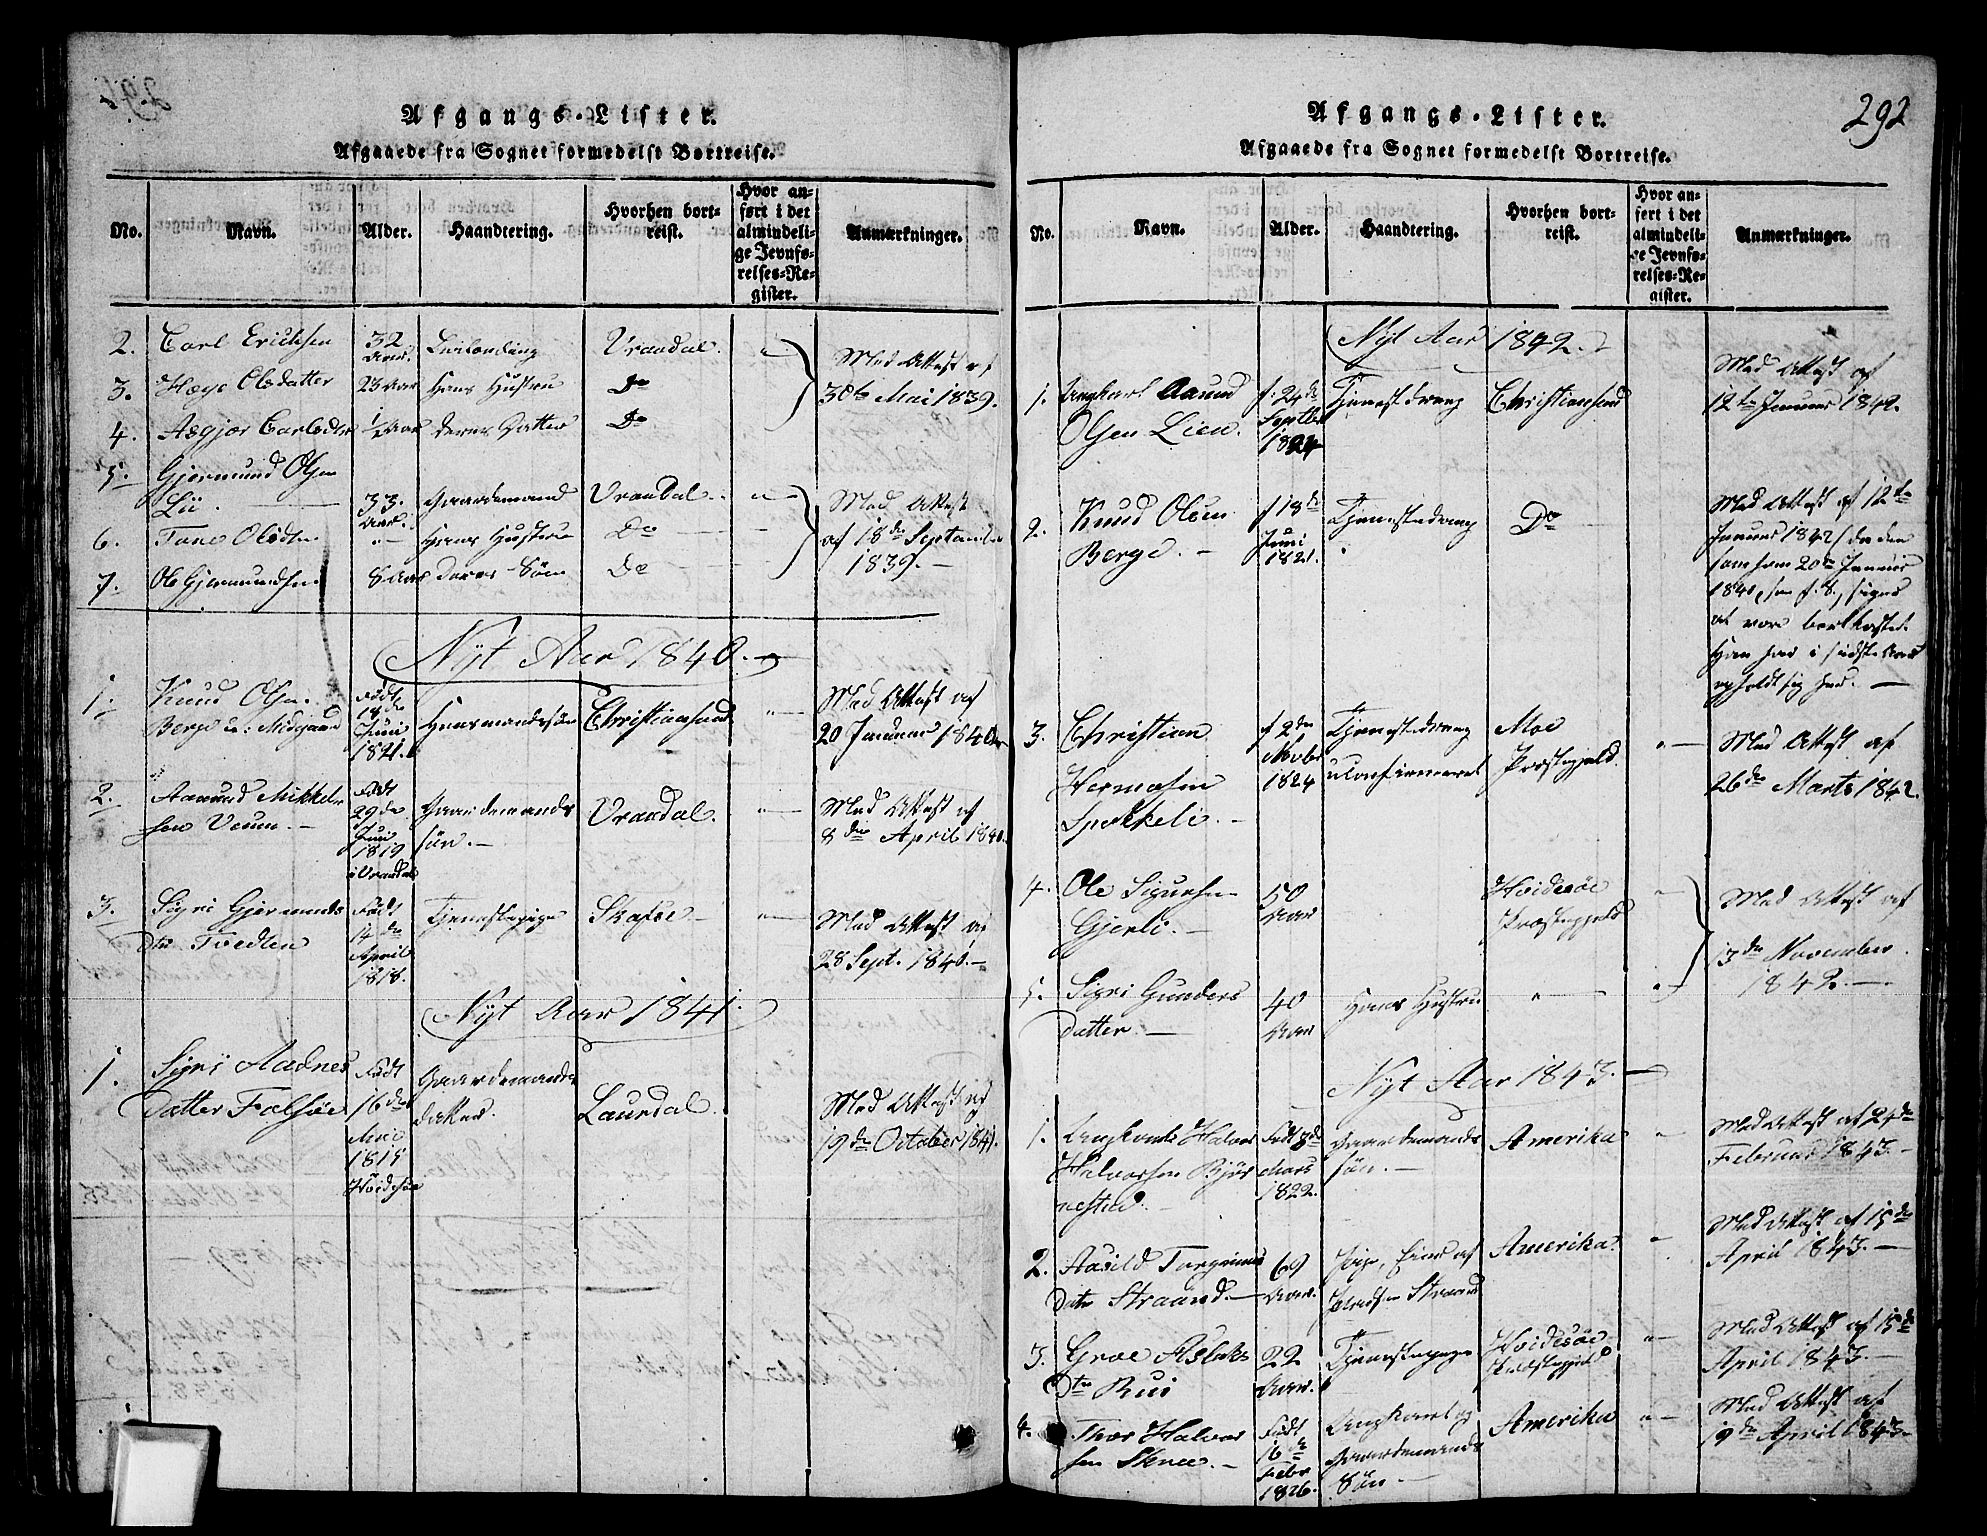 Afgangs-Lister.
Afgaaede fra Sognet formedelst Bortreise.
No.
Navn.
Alder.
Haandtering.
Hvorhen bort-
reist.
Hvor an-
ført i det
almindeli-
ge Jevnfø-
relses-Re-
gister.
Anmærkninger.
2. Carl Erichsen 32 Aar. Vraadal. "
3. Hæge Olsdatter 23 Aar Hans Hustru Do
Med Attest af
30te Mai 1839.
4. Asgjær Carlsdtr Aar deres Datter Do
5. Gjermund Olsen
Lii. 33. Aar. Gaardemand Vraadal. "
6. Tone Olsdtr. " Hans Hustru Do
7. Ole Gjermundsen 8 Aar deres Søn Do
Med Attest
af 18de September
1839.
Nyt Aar 1840.
1. Knud Olsen
Berge u: Midgaard
Født
18de
Juni
1821.
Huusmandssøn Christiansand "
Med Attest af
20 Januar 1840
2. Aamund Mikkel-
sen Veum.
Født
29de
Juni
1819
i Vraadal
Gaardemands
søn.
Vraadal. "
Med Attest af
8de April 1840.
3. Sigri Gjermunds
dtr Tvedten
Født
14de
April
1818.
Tjenestepige Skafse "
Med Attest af
28 Sept. 1840.
Nyt Aar 1841.
1. Sigri Aadnes
Datter Falsøe
Født
16de
Mai
1815
Hvidesøe
Gaardemands
datter.
Laurdal.
Med Attest af
19de October 1841.
292
Afgangs-Lister.
Afgaaede fra Sognet formedelst Bortreise.
No.
Navn.
Alder.
Haandtering.
Hvorhen bort-
reist.
Hvor an-
ført i det
almindeli-
ge Jevnfø-
relses-Re-
gister.
Anmærkninger.
Nyt Aar 1842.
1. Ungkarl Aamund
Olsen Lien.
f. 24de
Septbr
1824
Tjenestedreng Christiansand
Med Attest af
12te Januar 1842.
2. Knud Olsen
Berge.
f 18de
Juni
1821.
Tjenestedreng Do
Med Attest af 12te
Januar 1842 / da den
som ham 20de Januar
1840, siges
at være bortkastet.
Han har i sidste Aar
opholdt sig her.
3. Christian
Hermosen
Spokkeli.
f 2den
Novbr
1824
Tjenestedreng
uconfirmeret
Moe
Præstegjeld. "
Med Attest af
26de Marts 1842.
4. Ole Sigursen
Gjerli.
50
Aar
Hvidesøe
Præstegjeld "
5. Sigri Gunders
datter.
40
Aar
Hans Hustru " "
Med Attest af
13de November
1842.
Nyt Aar 1843.
1. Ungkarl Halvor
Halvorsen Bjør-
nestad.
Født 8de
Mars
1822.
Gaardemands
søn.
Amerika "
Med Attest af 24de
Februar 1843.
2. Aasild Torgrims
datr Straand.
69
Aar.
Pige,
Straand
Amerika. "
Med Attest af 15de
April 1843.
3. Groe Aslaks
dtr Rui
22
Aar.
Tjenestepige Hvidesøe
Præstegjeld "
Med Attest af 15de
April 1843.
4. Thor Halvor
sen Skree.
Født
16de
Febr
1826.
Ungkarl og
Gaardemands
Søn
Amerika "
Med Attest af
19de April 1843.